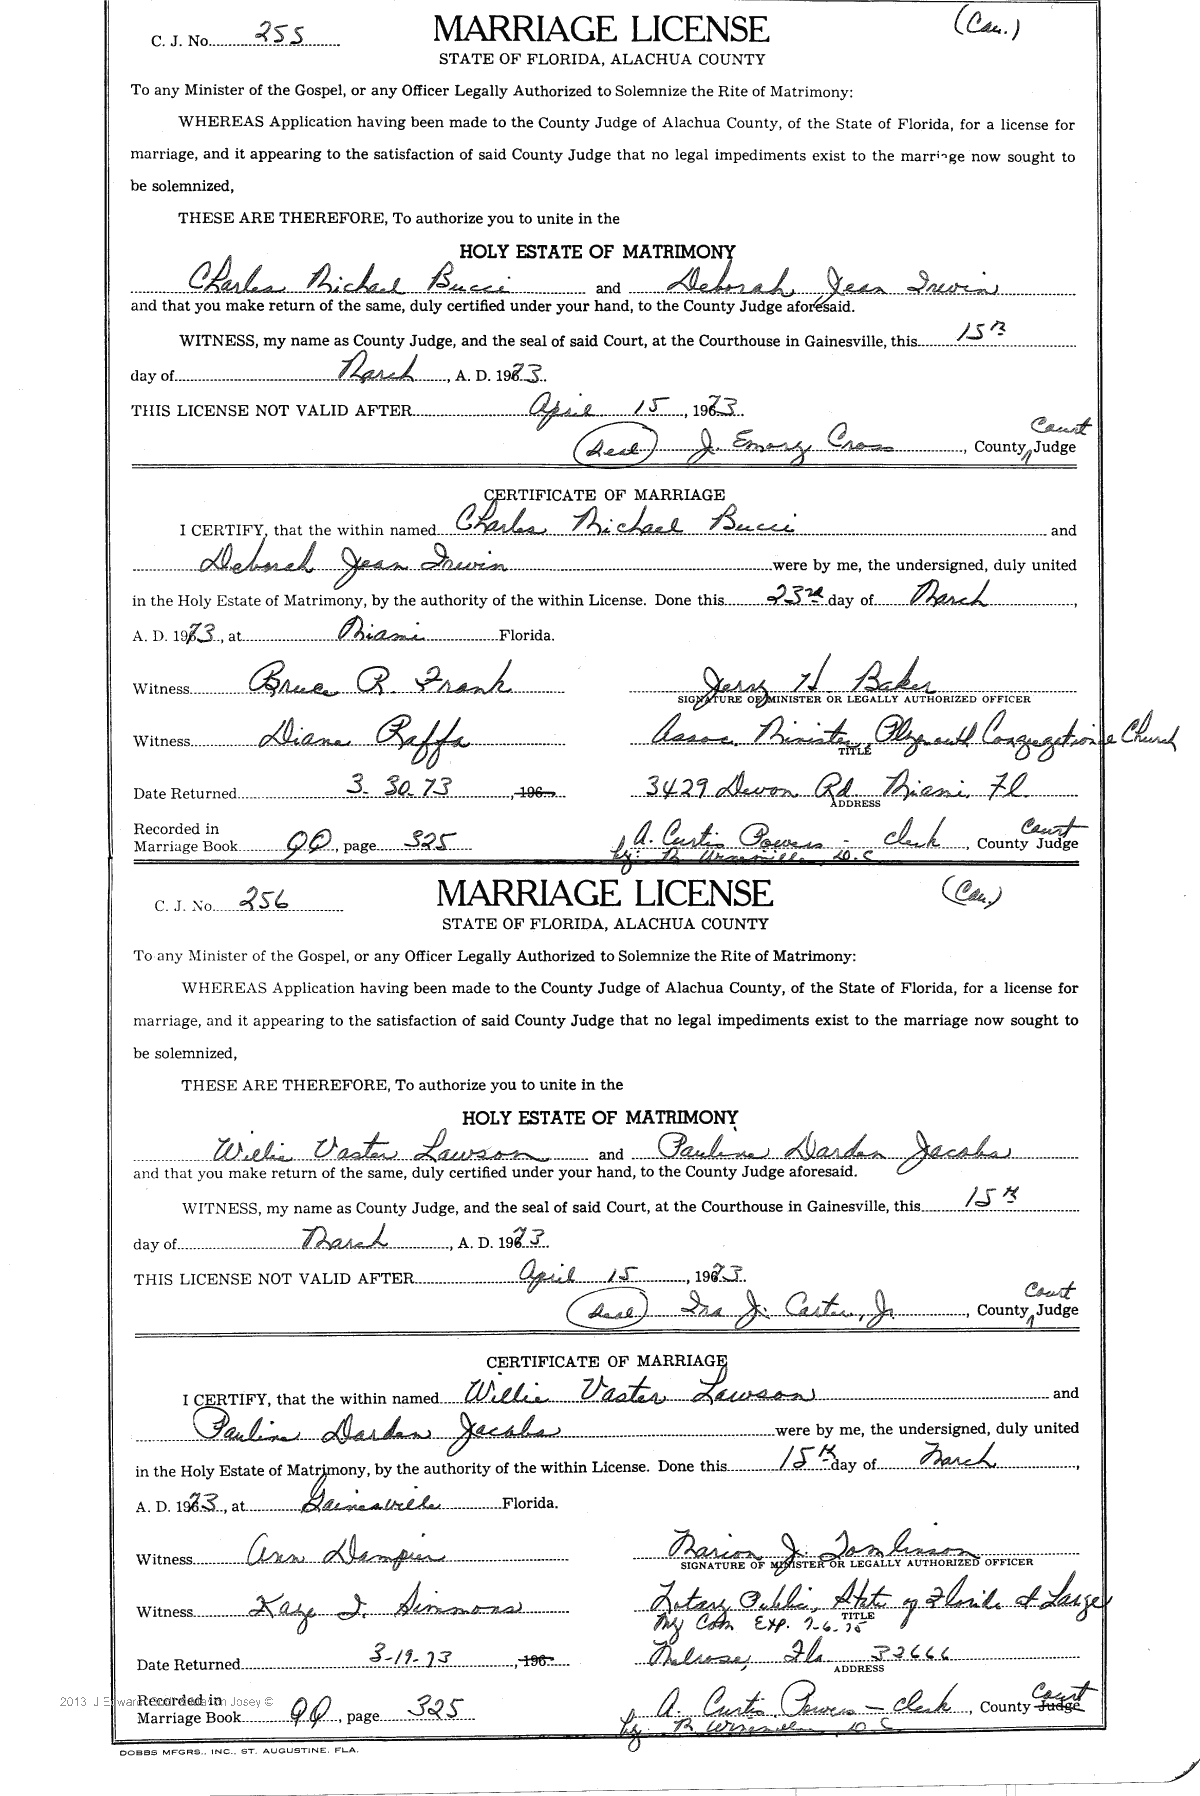 C. J. No. 255 MARRIAGE LICENSE (Cau.)
STATE OF FLORIDA, ALACHUA COUNTY
To any Minister of the Gospel, or any Officer Legally Authorized to Solemnize the Rite of Matrimony:
WHEREAS Application having been made to the County Judge of Alachua County, of the State of Florida, for a license for
marriage, and it appearing to the satisfaction of said County Judge that no legal impediments exist to the marriage now sought to
be solemnized,
THESE ARE THEREFORE, To authorize you to unite in the
HOLY ESTATE OF MATRIMONY
Charles Michael Bucci and Deborah Jean Irwin
and that you make return of the same, duly certified under your hand, to the County Judge aforesaid.
WITNESS, my name as County Judge, and the seal of said Court, at the Courthouse in Gainesville, this 15th
day of March, A. D. 1973.
THIS LICENSE NOT VALID AFTER April 15, 1973
(Seal) J. Emory Cross, County Court Judge
CERTIFICATE OF MARRIAGE
I CERTIFY, that the within named Charles Michael Bucci and
Deborah Jean Irwin were by me, the undersigned, duly united
in the Holy Estate of Matrimony, by the authority of the within License. Done this 23rd day of March,
A. D. 1973, at Miami Florida.
Witness Bruce R. Frank Jerry H Baker
SIGNATURE OF MINISTER OR LEGALLY AUTHORIZED OFFICER
Witness Diane Raffa Assoc. Minister, Plymouth Congregational Church
TITLE
Date Returned 3-30-73, 196 3429 Devon Rd Miami, Fl.
ADDRESS
Recorded in
Marriage Book QQ, page 325 A. Curtis Powers - Clerk, County Court Judge
by: D.C
C. J. No. 256 MARRIAGE LICENSE (Cau.)
STATE OF FLORIDA, ALACHUA COUNTY
To any Minister of the Gospel, or any Officer Legally Authorized to Solemnize the Rite of Matrimony:
WHEREAS Application having been made to the County Judge of Alachua County, of the State of Florida, for a license for
marriage, and it appearing to the satisfaction of said County Judge that no legal impediments exist to the marriage now sought to
be solemnized,
THESE ARE THEREFORE, To authorize you to unite in the
HOLY ESTATE OF MATRIMONY
Willie Vaster Lawson and Pauline Darden Jacobs
and that you make return of the same, duly certified under your hand, to the County Judge aforesaid.
WITNESS, my name as County Judge, and the seal of said Court, at the Courthouse in Gainesville, this 15th
day of March, A. D. 1973.
THIS LICENSE NOT VALID AFTER April 15, 1973
(Seal) Ira J. Carter, Jr., County Court Judge
CERTIFICATE OF MARRIAGE
I CERTIFY, that the within named Willie Vaster Lawson and
Pauline Darden Jacobs were by me, the undersigned, duly united
in the Holy Estate of Matrimony, by the authority of the within License. Done this 15th day of March,
A. D. 1973, at Gainesville Florida.
Witness Ann Dampier Marion J. Tomlinson
SIGNATURE OF MINISTER OR LEGALLY AUTHORIZED OFFICER
Witness Kaye I. Simmons Notary Public, State of Florida at Large
TITLE
My Com Exp. 7-6-75
Date Returned 3-19-73, 196 Melrose, Fla 32666
ADDRESS
Recorded in
Marriage Book QQ, page 325 A. Curtis Powers - Clerk, County Court Judge
by: D.C
DOBBS MFGRS., INC., ST. AUGUSTINE, FLA.